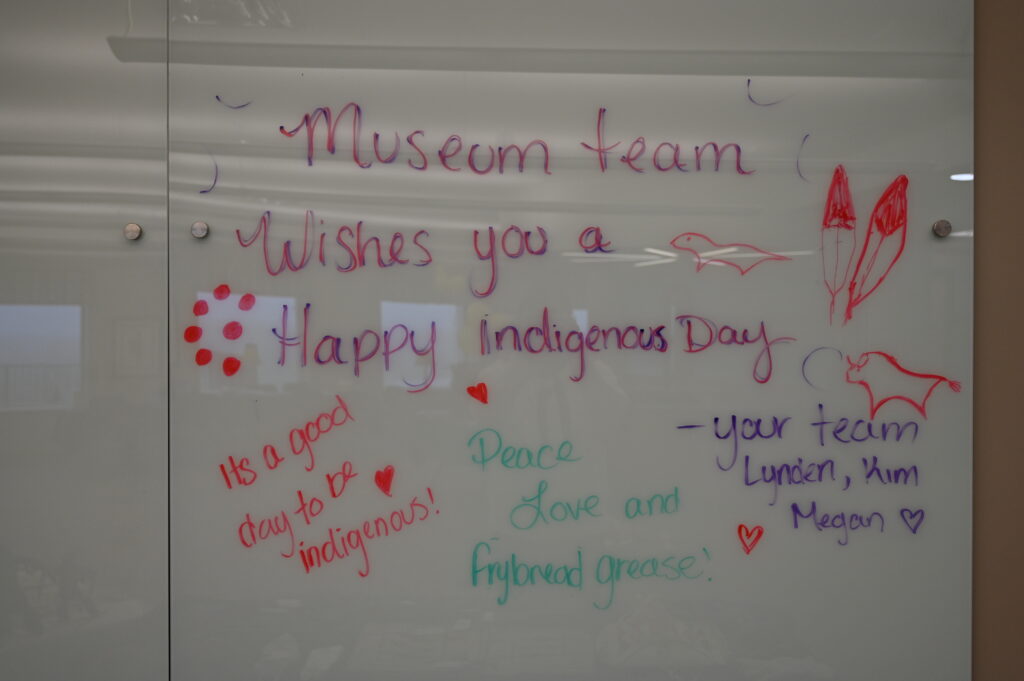 Museum team
Wishes you a
Happy indigenous Day
Its a good
day to be
indigenous!
Peace
Love and
frybread grease!
- your team
Lynden, Kim
Megan